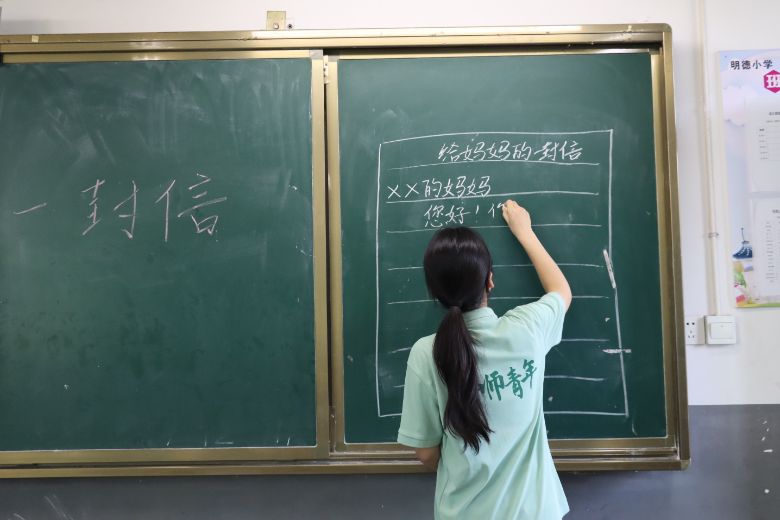 一封信
给妈妈的一封信
××的妈妈
您好！
师青年
明德小学
班